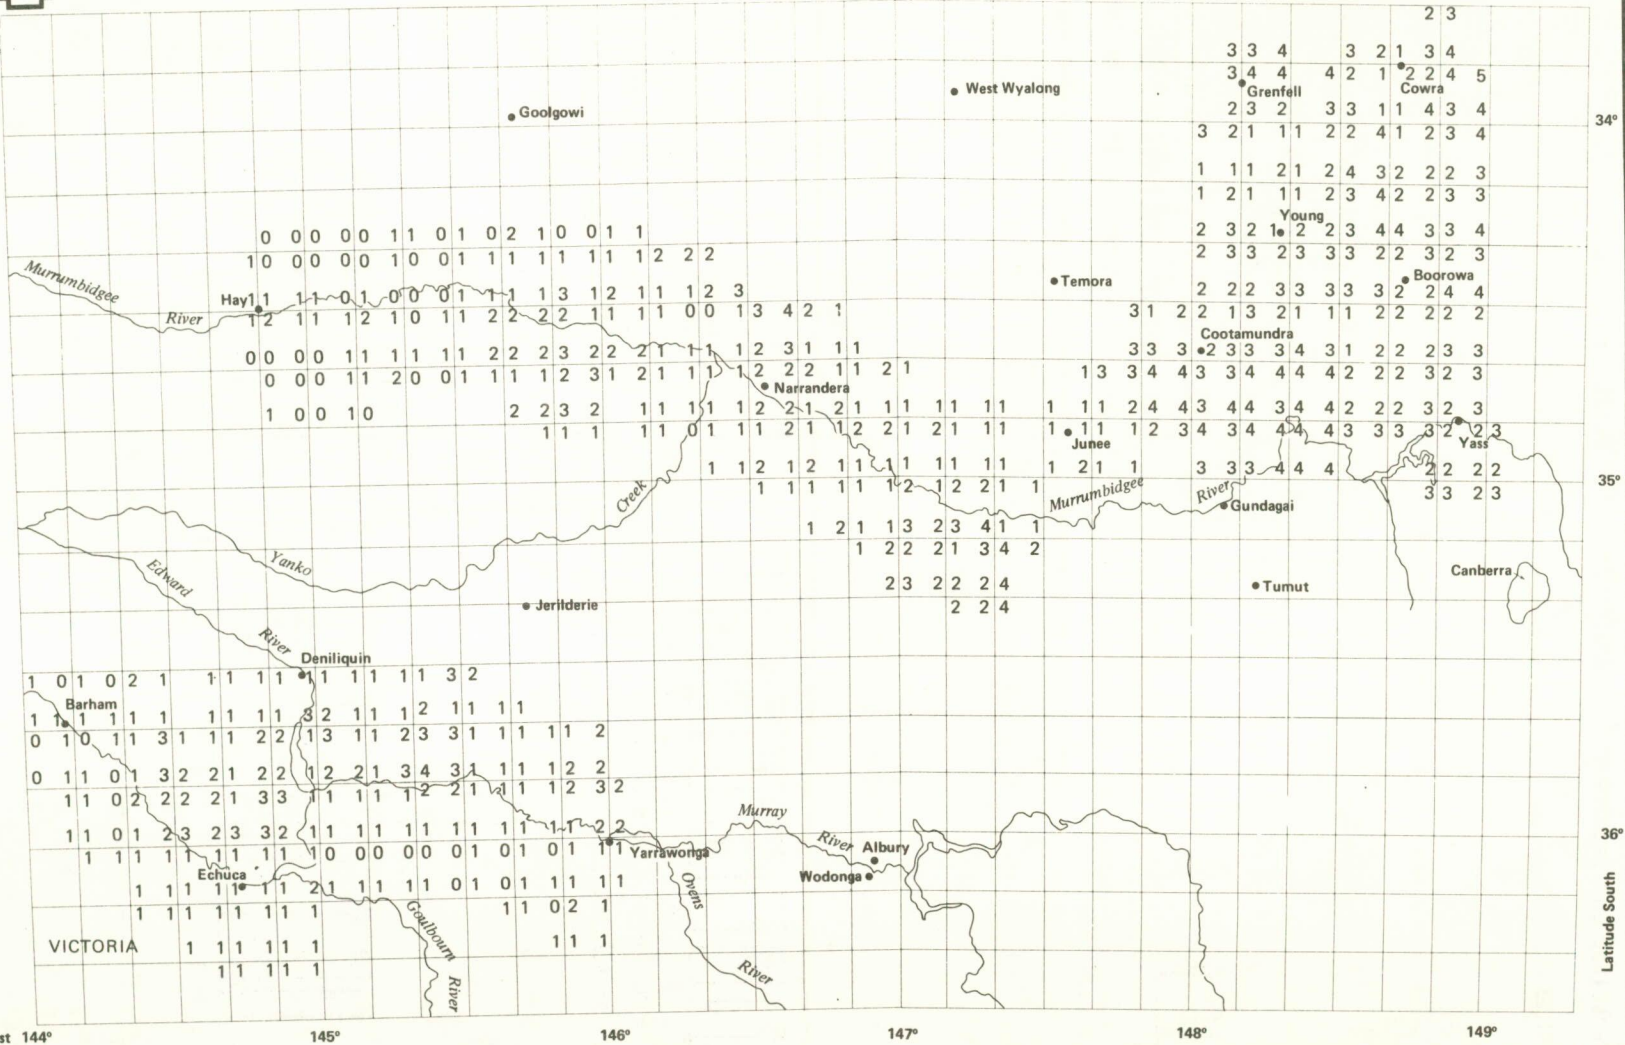 2 3
3 3 4 3 2 1 3 4
3 4 4 4 2 1 2 2 4 5
West Wyalong
Grenfell
Cowra
Goolgowi
2 3 2 3 3 1 1 4 3 4
34°
3 2 1 1 1 2 2 4 1 2 3 4
1 1 1 2 1 2 4 3 2 2 2 3
1 2 1 1 1 2 3 4 2 2 3 3
Young
2 3 2 1 2 2 3 4 4 3 3 4
0 0 0 0 0 1 1 0 1 0 2 1 0 0 1 1
2 3 3 2 3 3 3 2 2 3 2 3
1 0 0 0 0 0 1 0 0 1 1 1 1 1 1 1 1 2 2 2
Murrumbidgee
Temora
Boorowa
Hay 1 1 1 1 0 1 0 0 0 1 1 1 1 3 1 2 1 1 1 2 3
2 2 2 3 3 3 3 3 2 2 4 4
River
1 2 1 1 1 2 1 0 1 1 2 2 2 2 2 1 1 1 1 0 0 1 3 4 2 1
3 1 2 2 1 3 2 1 1 1 2 2 2 2 2
Cootamundra
0 0 0 0 1 1 1 1 1 1 2 2 2 3 2 2 2 1 1 1 1 2 3 1 1 1
3 3 3 2 3 3 3 4 3 1 2 2 2 3 3
0 0 0 1 1 2 0 0 1 1 1 1 2 3 1 2 1 1 1 1 2 2 2 1 1 2 1
1 3 3 4 4 3 3 4 4 4 4 2 2 2 3 2 3
Narrandera
1 0 0 1 0 2 2 3 2 1 1 1 1 1 2 2 1 2 1 1 1 1 1 1 1
1 1 1 2 4 4 3 4 4 3 4 4 2 2 2 3 2 3
1 1 1 1 1 0 1 1 1 2 1 1 2 2 1 2 1 1 1
1 1 1 1 2 3 4 3 4 4 4 4 3 3 3 3 2 2 3
Junee
Yass
1 1 2 1 2 1 1 1 1 1 1 1 1
1 2 1 1 3 3 3 4 4 4 2 2 2 2
35°
1 1 1 1 1 1 2 1 2 2 1 1
3 3 2 3
Creek
Murrumbidgee
River
Gundagai
1 2 1 1 3 2 3 4 1 1
1 2 2 2 1 3 4 2
Yanko
Edward
Canberra
2 3 2 2 2 4
Tumut
Jerilderie
2 2 4
River
Deniliquin
1 0 1 0 2 1 1 1 1 1 1 1 1 1 1 1 3 2
Barham
1 1 1 1 1 1 1 1 1 1 3 2 1 1 1 2 1 1 1 1
0 1 0 1 1 3 1 1 1 2 2 1 3 1 1 2 3 3 1 1 1 1 1 2
0 1 1 0 1 3 2 2 1 2 2 1 2 2 1 3 4 3 1 1 1 1 2 2
1 1 0 2 2 2 2 1 3 3 1 1 1 1 1 2 2 1 1 1 1 2 3 2
Murray
1 1 0 1 2 3 2 3 3 2 1 1 1 1 1 1 1 1 1 1 1 1 2 2
36°
River
Albury
1 1 1 1 1 1 1 1 1 1 0 0 0 0 0 0 1 0 1 0 1 1 1
Yarrawonga
Echuca
Wodonga
1 1 1 1 1 1 1 2 1 1 1 1 1 0 1 0 1 1 1 1 1
Ovens
Goulbourn
1 1 1 1 1 1 1 1 1 1 0 2 1
Latitude South
VICTORIA
1 1 1 1 1 1 1 1 1
River
1 1 1 1 1
River
144° 145° 146° 147° 148° 149°